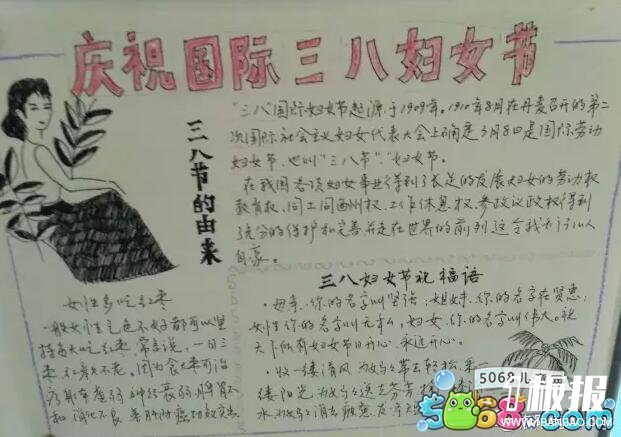 庆祝国际三八妇女节
三八节的由来
"三八"国际妇女节起源于1909年。1910年8月在丹麦召开的第二
次国际社会主义妇女代表大会上确定3月8日是国际劳动
妇女节,也叫"三八节""妇女节。
在我国各项妇女事业得到了长足的发展妇女的劳动权
教育权、同工同酬权、工作休息权、参政议政权得到
了充分的保护和完善并走在世界的前列这令我们
自豪。
三八妇女节祝福语
母亲,你的名字叫坚强;姐妹,你的名字在贤惠;
女性你的名字叫,妇女,你的名字叫伟大。祝
天下所有妇女节日开心,永远开心。
收一缕清风为妈妈
缕阳光为妈妈送去
水为妈妈消去疲惫
女性多吃红枣
一般女性气色不好都可以坚
持每天吃红枣,常言说,一日三
枣,红颜不老,因为食枣可治
神经衰弱、脾胃不
和、消化不良
5068儿童网
板报
www.7BANBAO.COM